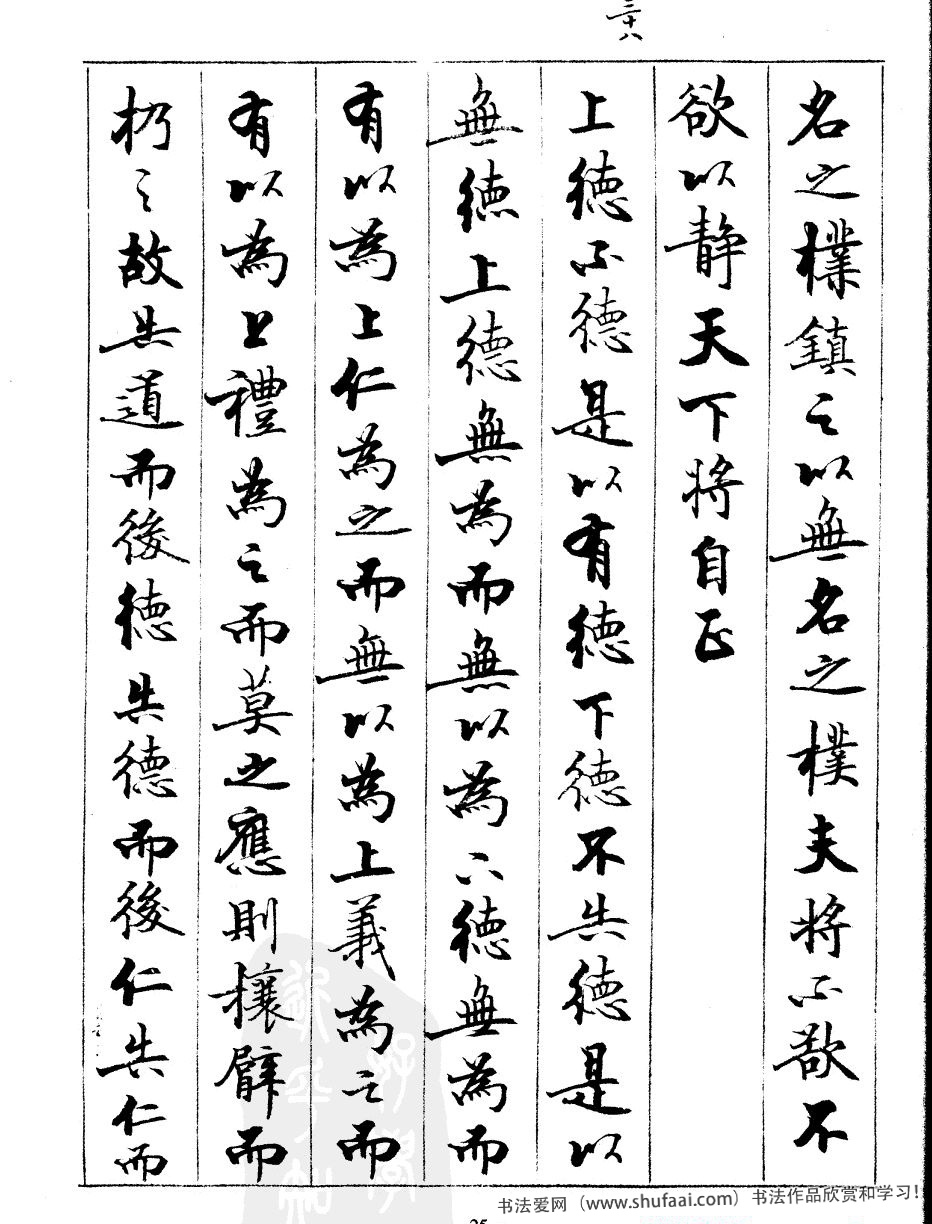 三十八
名之樸鎮之以無名之樸夫将不欲不
欲以静天下将自正
上德不德是以有德下德不失德是以
無德上德無為而無以為下德無為而
有以為上仁為之而無以為上義為之而
有以為上禮為之而莫之應則攘臂而
扔之故失道而後德失德而後仁失仁而
书法爱网（www.shufaai.com）书法作品欣赏和学习！